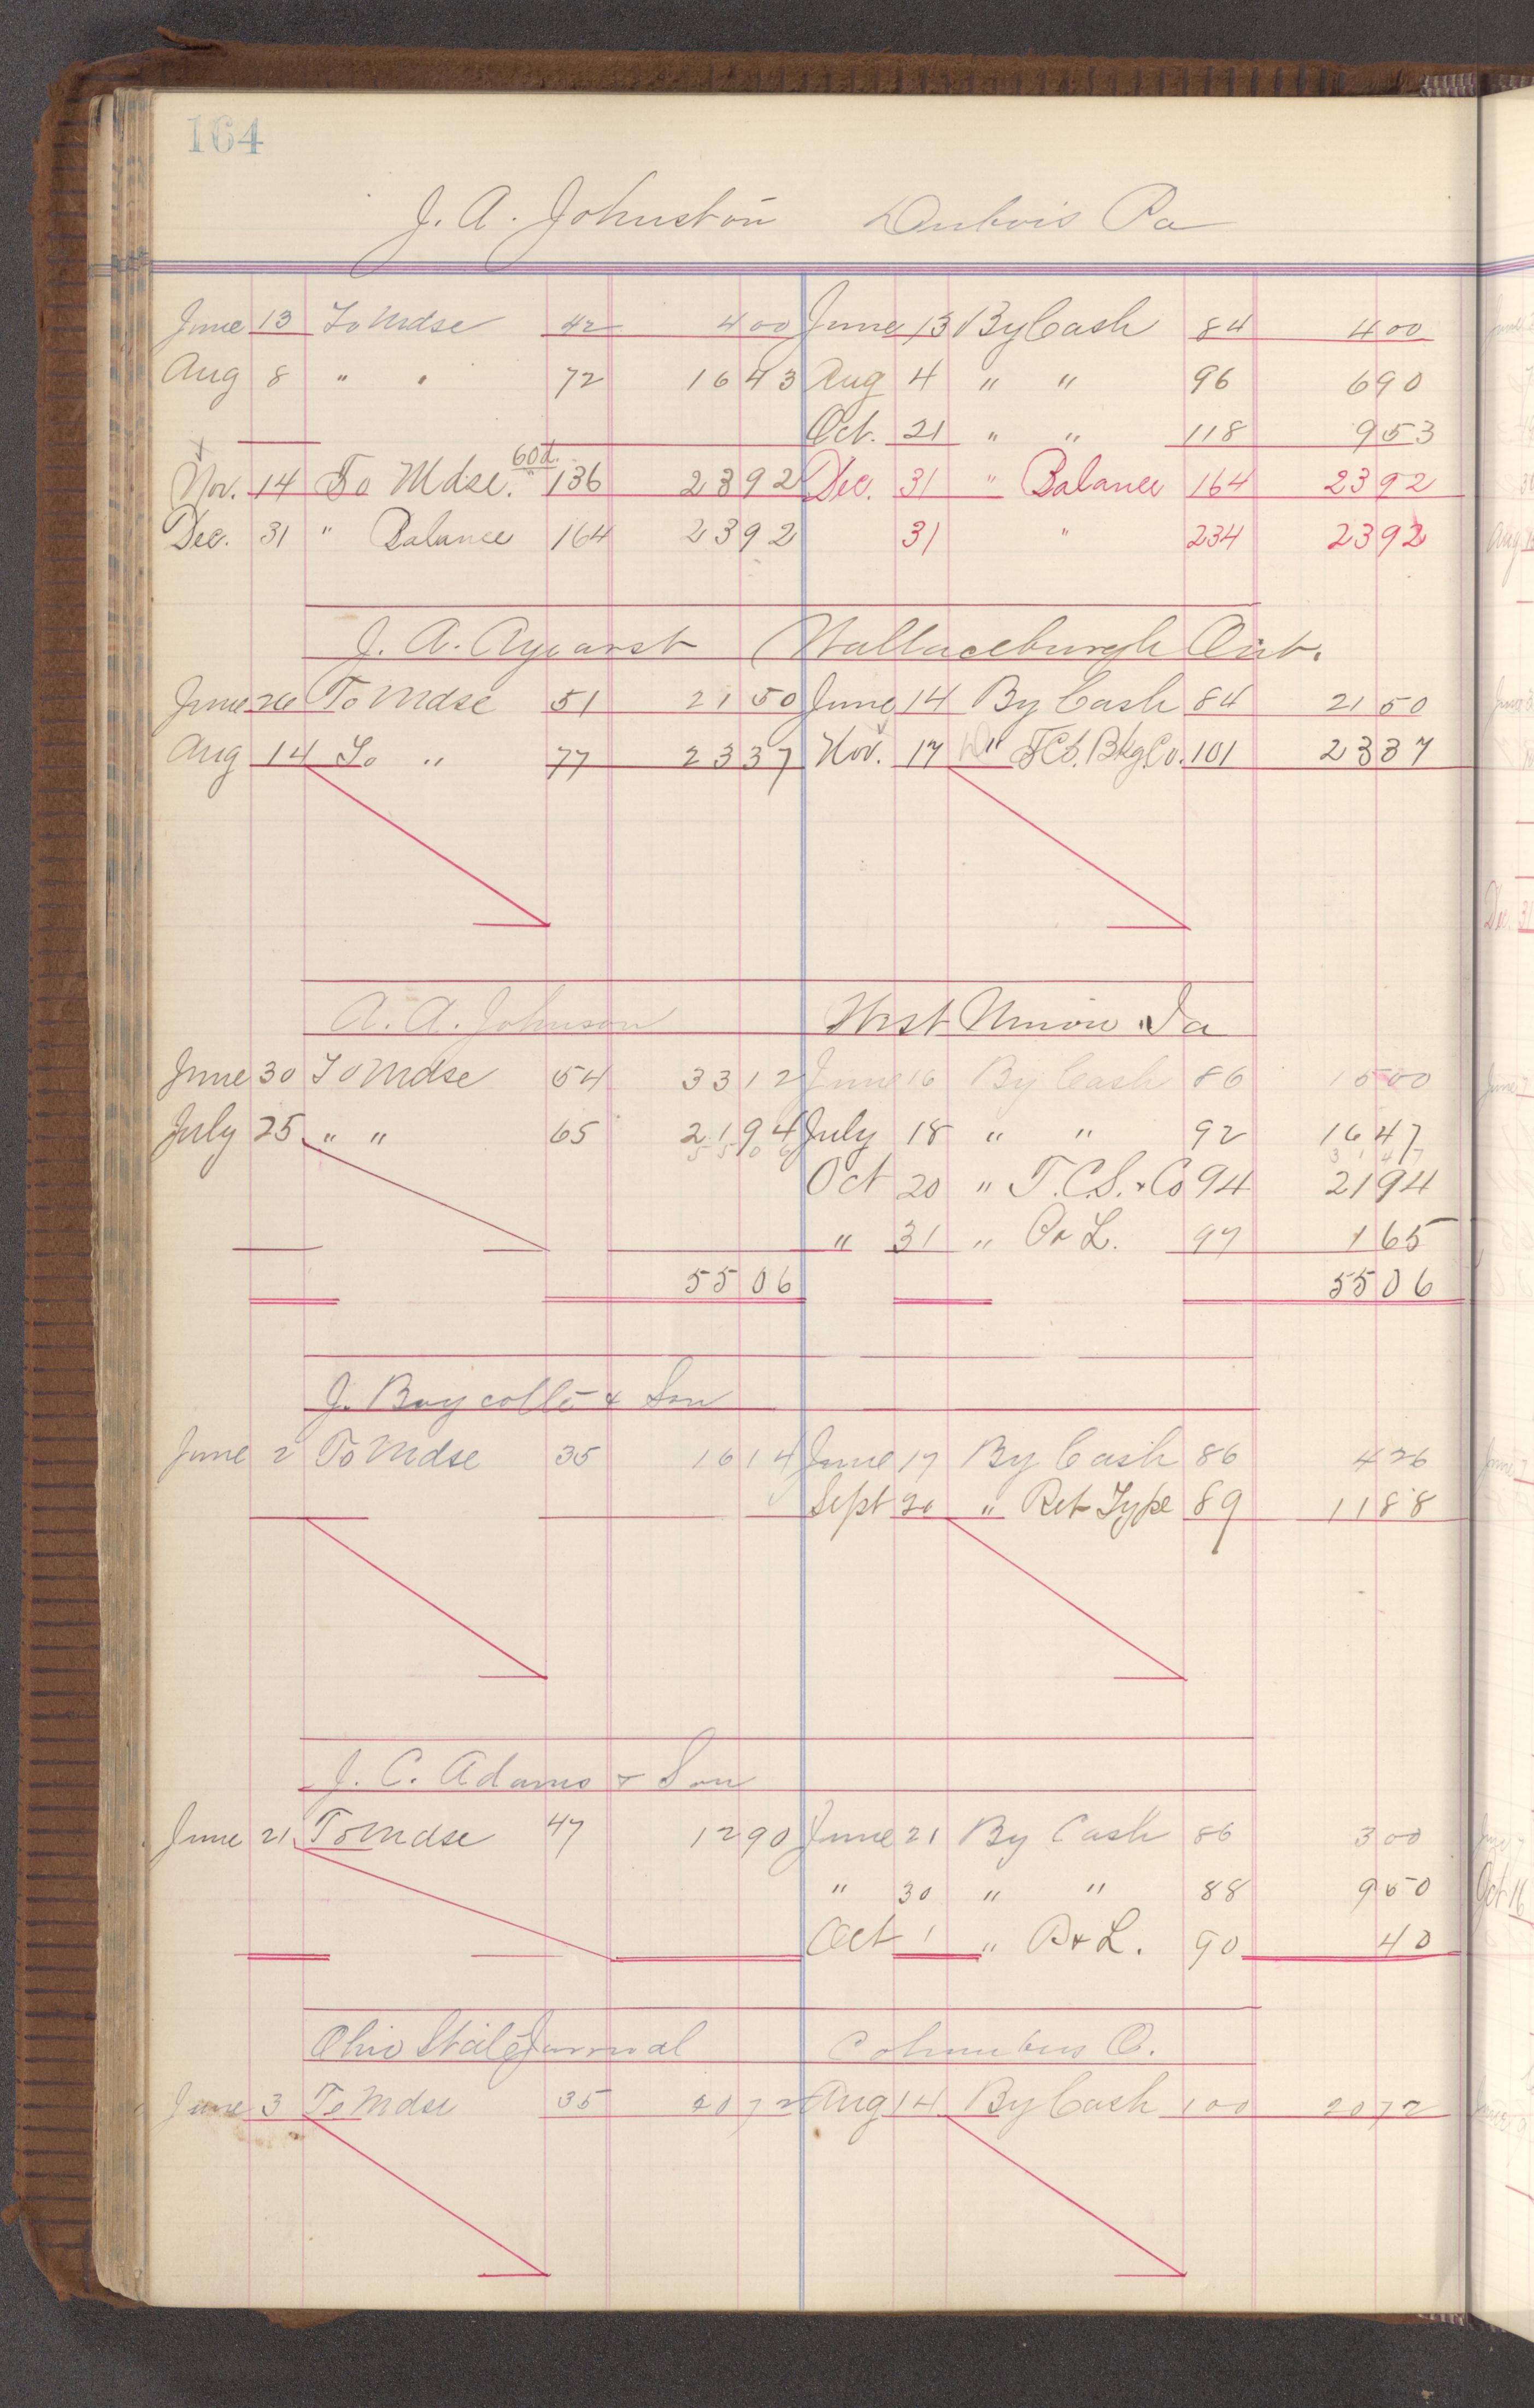 164
J. A. Johnston Dubois Pa
June 13 To Mdse 42 4 00 June 13 By Cash 84 4 00
Aug 8 " " 72 16 43 Aug 4 " " 96 6 90
Oct. 21 " " 118 9 53
60d.
Nov. 14 To Mdse. " 136 23 92 Dec. 31 " Balance 164 23 92
Dec. 31 " Balance 164 23 92 31 " 234 23 92
J. A. Wallaceburgh Ont.
June 26 To Mdse 51 21 50 June 14 By Cash 84 21 50
Aug 14 To " 77 23 37 Nov. 17 " Bkg Co. 101 23 37
A. A. Johnson West Union Ia
June 30 To Mdse 54 33 12 June 16 By Cash 86 15 00
July 25 " " 65 21 94 July 18 " " 92 16 47
55 06 31 47
Oct 20 " T.C.S. & Co 94 21 94
" 31 " P & L. 97 1 65
55 06 55 06
J. & Son
June 2 To Mdse 35 16 14 June 17 By Cash 86 4 26
Sept 20 " Ret Type 89 11 88
J. C. Adams & Son
June 21 To Mdse 47 12 90 June 21 By Cash 86 3 00
" 30 " " 88 9 50
Oct 1 " P & L. 90 40
Ohio State Journal Columbus O.
June 3 To Mdse 35 20 72 Aug 14 By Cash 100 20 72